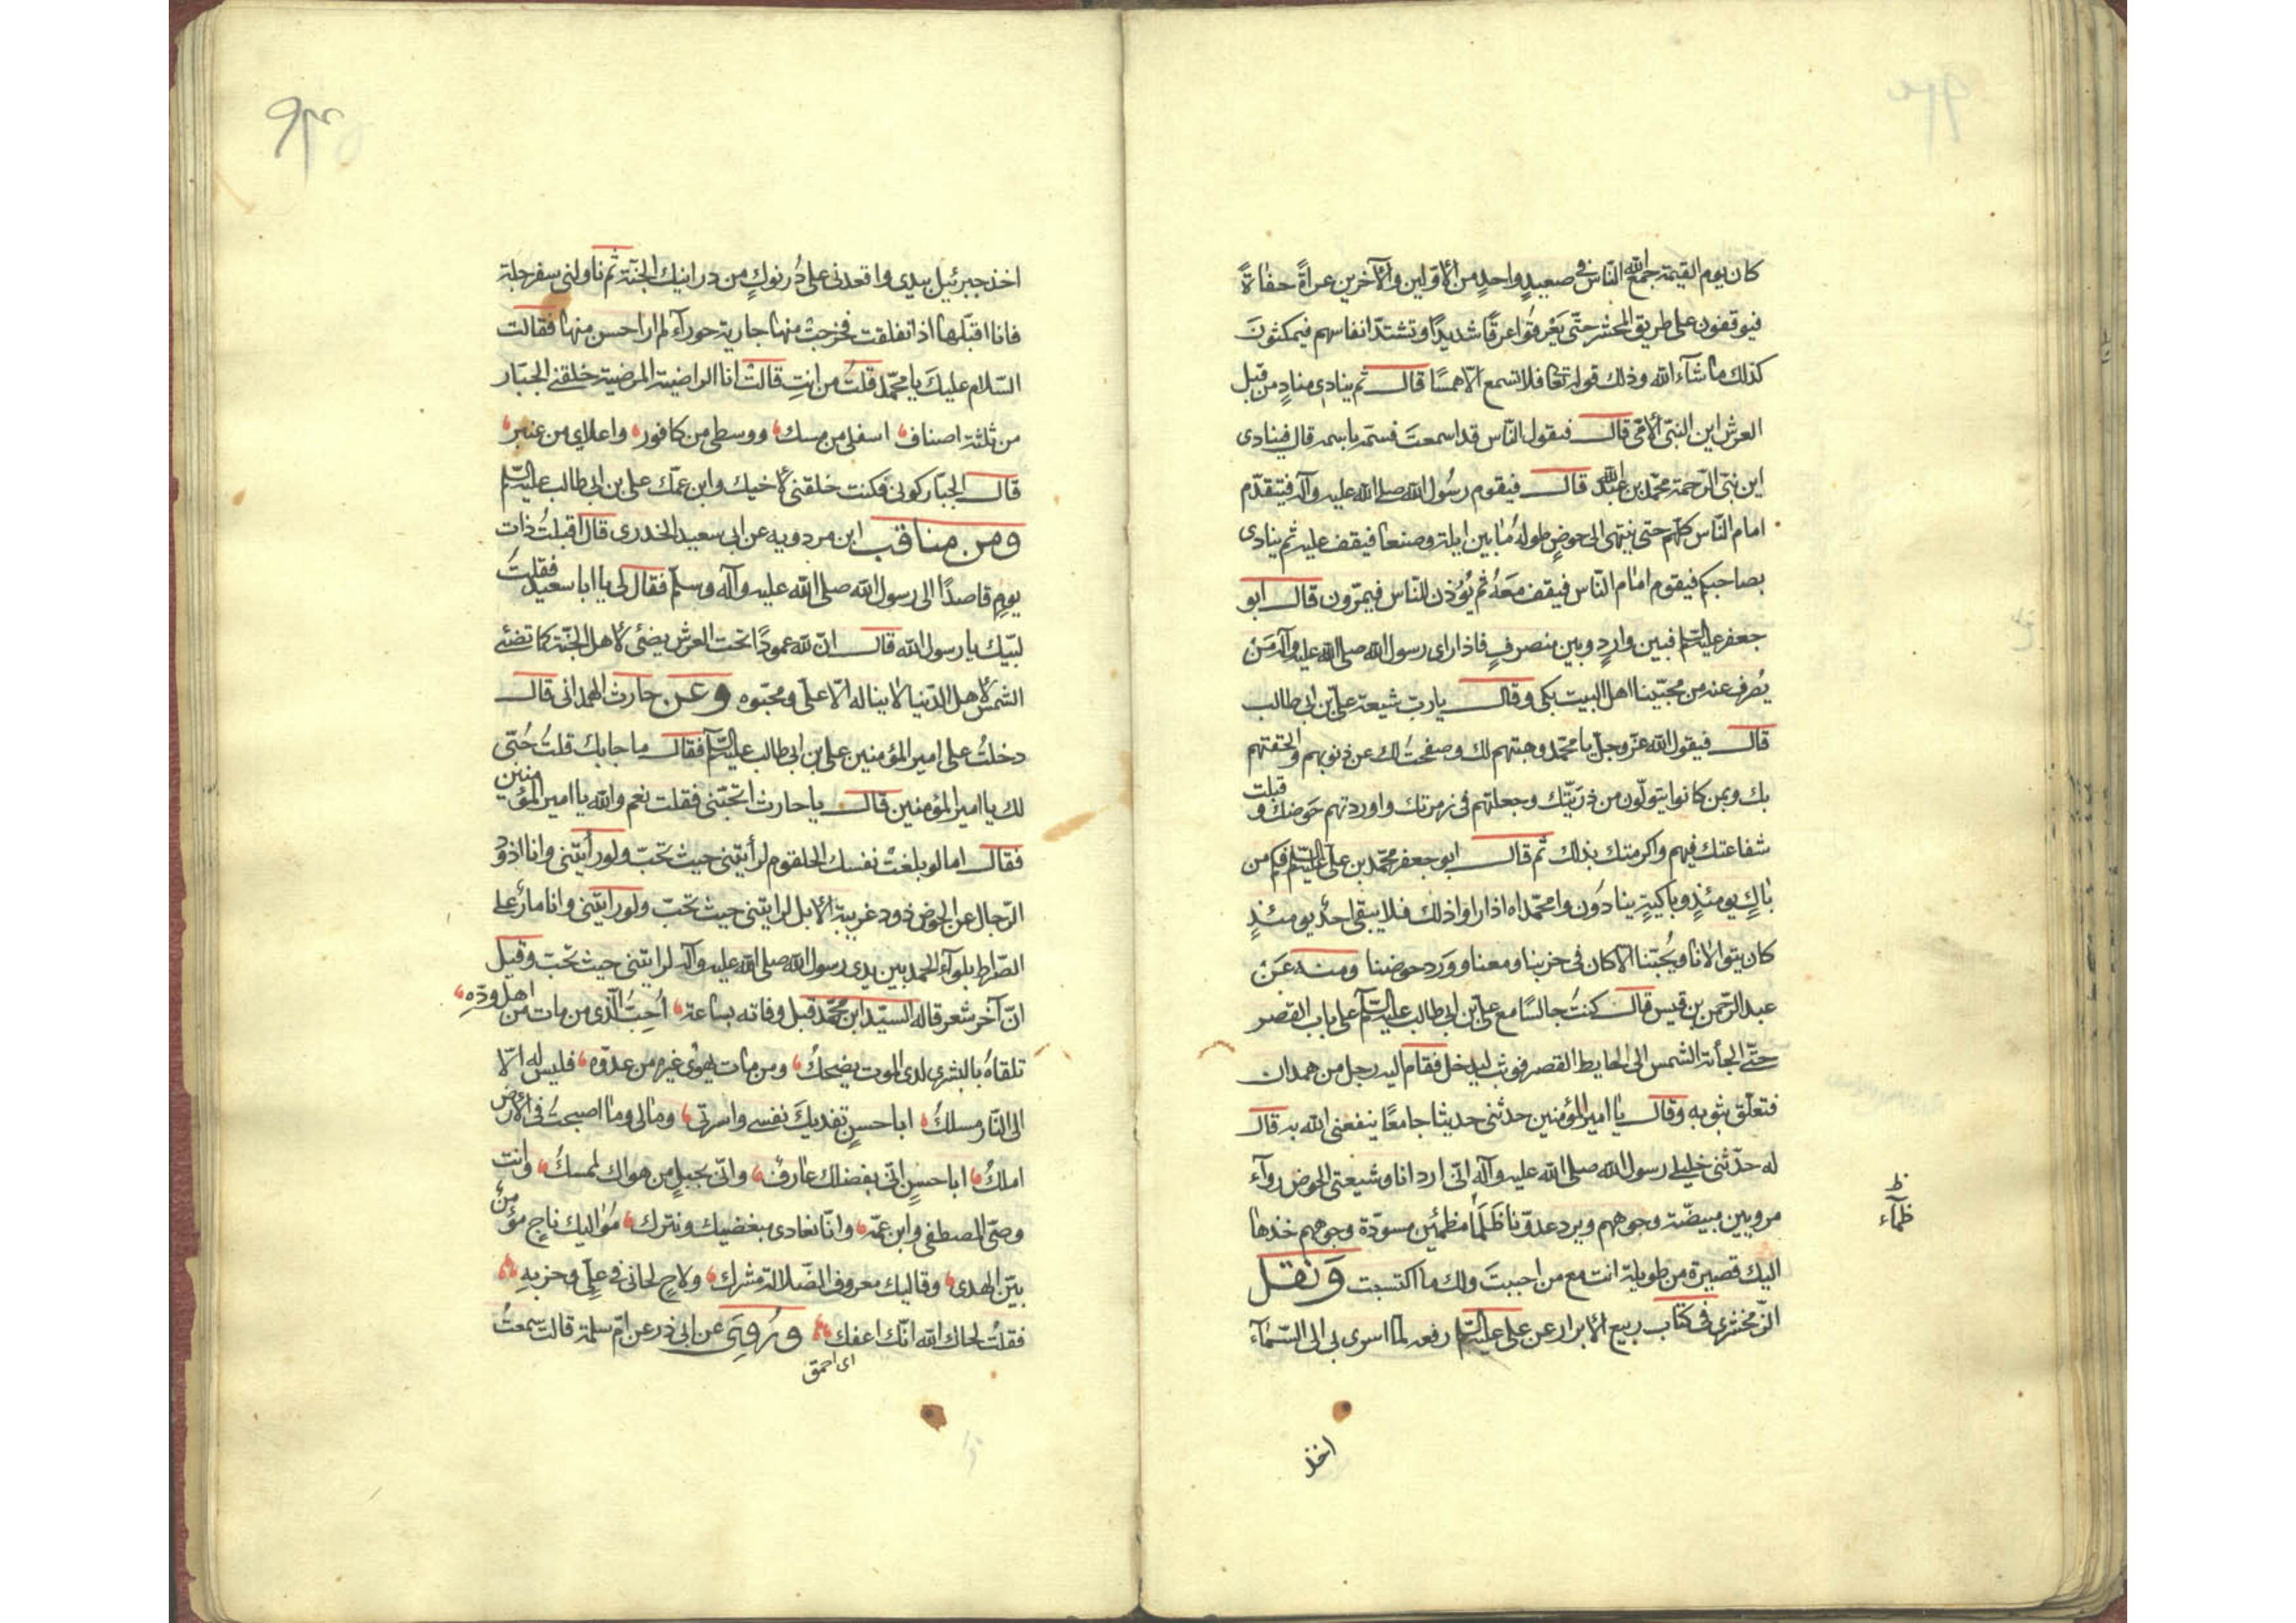 كان يوم القيمة جمع الله الناس في صعيدٍ واحدٍ من الأوّلين والآخرين عراةً حفاةً
فيوقفون على طريق المحشر حتّى يَعْرقُوا عرقًا شديدًا وتشتدّ انفاسهم فيمكثونَ
كذلك ما شآء الله وذلك قوله تعا فلا تسمع الّا همسًا قال ثم ينادى منادٍ من قبل
العرش اين النبىّ الأمّى قال فيقول النّاس قد اسمعتَ فسمّه باسمه قال فينادى
اين نبىّ الرّحمة محمّد بن عبد الله قال فيقوم رسُول الله صلى الله عليه وآله فيتقدّم
امام النّاس كلّهم حتى ينتهى الى حوضٍ طولهُ ما بين ايلة وصنعا فيقف عليه ثم ينادى
بصاحبكم فيقوم امام النّاس فيقف معَهُ ثم يُؤذن للنّاس فيمرّون قال ابو
جعفر عليه السّلم فبين واردٍ وبين منصرفٍ فاذا راى رسول الله صلى الله عليه وآله مَنْ
يُصْرف عنه من محبّينا اهل البيت بكى وقال يا ربّ شيعة علىّ بن ابى طالب
قال فيقول الله عزّ وجلّ يا محمّد وهبتهم لك وصفحتُ لك عن ذنوبهم والحقتهم
بك وبمن كانوا يتولّون من ذريّتك وجعلتهم فى زمرتك واوردتهم حَوضك وقبلت
شفاعتك فيهم واكرمتك بذلك ثم قال ابو جعفر محمّد بن على عليه السّلم فكم من
باكٍ يومئذٍ وباكيةٍ ينادَون وا محمّداه اذا راوا ذلك فلا يبقى احدٌ يومئذٍ
كان يتوالانا ويُحبّنا الّا كان فى حزبنا ومعنا ووَرد حوضنا ومنه عَنْ
عبد الرّحمن بن قيس قال كنتُ جالسًا مع علىّ بن ابى طالب عليه السّلم على باب القصر
حتّى الجأته الشمس الى الحايط القصر فوثب ليدخل فقام اليه رجل من همدان
فتعلّق بثوبه وقال يا امير المؤمنين حدّثنى حديثا جامعًا ينفعنى الله به قال
له حدّثنى خليلى رسول الله صلى الله عليه وآله انّى ارد انا وشيعتى الحوض روآء
مرويين مبيضّة وجوههم ويرد عدوّنا ظَمَآ مظمئين مسودّة وجوههم خذها
ظ
ظمآء
اليك قصيرة من طويلة انت مع من احببتَ ولك ما اكتسبت وَنقل
الزّمخشرى فى كتاب ربيع الأبرار عن على عليه السّلم رفعه لما اسرى بى الى السّمآء
اخذ
اخذ جبرئيل بيدى واقعدنى على دُرنوكٍ من درانيك الجنّة ثم ناولنى سفرجلة
فانا اقبّلها اذ انفلقت فخرجتْ منها جارية حورآء لم ار احسن منها فقالت
السّلام عليكَ يا محمّد قلتُ من انتِ قالتْ انا الراضية المرضية خلقنى الجبّار
من ثلثة اصناف اسفلى من مسك ووسطى من كافور واعلاى من عنبر
قال الجبّار كونى فكنت خلقنى لأخيك وابن عمّك على بن ابى طالب عليه السّلم
ومن مناقب ابن مردويه عن ابى سعيد الخدرى قال اقبلتُ ذات
يومٍ قاصدًا الى رسول الله صلى الله عليه وآله وسلّم فقال لى يا ابا سعيد فقلتُ
لبّيك يا رسول الله قال انّ لله عمودًا تحت العرش يضئ لأهل الجنّة كما تضئ
الشمس لأهل الدّنيا لا يناله الّا على ومحبّوه وعن حارث الهمدانى قال
دخلتُ على امير المؤمنين على بن ابى طالب عليه السّلم فقال ما جابك قلتُ حُبّى
لك يا امير المؤمنين قال يا حارث اتحبّنى فقلت نعم والله يا امير المؤمنين
فقال اما لو بلغتْ نفسك الحلقوم لرأيتنى حيث تحبّ ولو رأيتنى وانا اذود
الرّجال عن الحوض ذود غريبة الأبل لرايتنى حيث تحبّ ولو رايتنى وانا مارٌّ على
الصّراط بلوآء الحمد بين يدى رسول الله صلى الله عليه وآله لرايتنى حيث تحب وقيل
انّ آخر شعر قاله السيّد ابن محمّد قبل وفاته بساعة اُحِبُّ الّذى من مات من اهل ودّهِ
تلقاهُ بالبشرى لدى الموت يضحكُ ومن مات يهوى غيره من عدوّه فليس له الّا
الى النّار مسلكُ ابا حسنٍ تفديكَ نفسى واسرتى ومالى وما اصبحتُ فى الأرض
املكُ ابا حسنٍ انّى بفضلك عارفٌ وانّى بحبلٍ من هواك لممسكُ وانت
وصىّ المصطفى وابن عمّه وانّا نعادى مبغضيك ونترك مُواليك ناجٍ مؤمنٌ
بيّن الهدى وقاليك معروف الضّلالة مشرك ولاحٍ لحانى فى علِىّ وحزبهِ
فقلتُ لحاك الله انّك اعفك ورُوِىَ عن ابى ذر عن امّ سلمة قالت سمعتُ
اى احمق